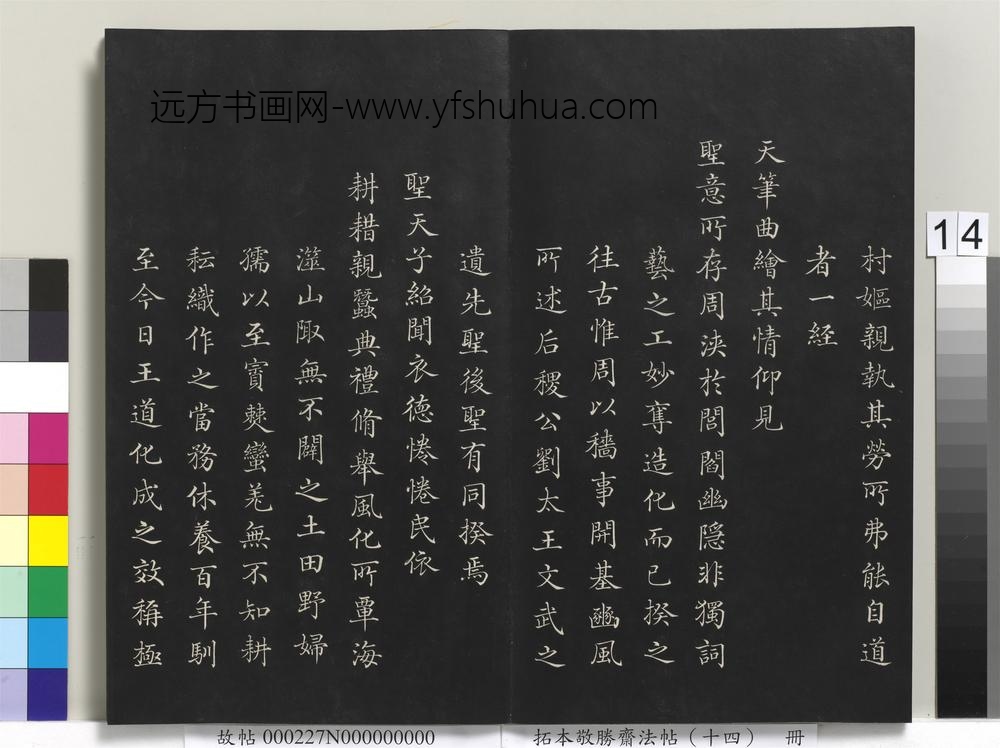 远方书画网-www.yfshuhua.com
14
村嫗親執其勞所弗能自道
者一經
天筆曲繪其情仰見
聖意所存周浹於閭閻幽隱非獨詞
藝之工妙奪造化而已揆之
往古惟周以穡事開基豳風
所述后稷公劉太王文武之
遺先聖後聖有同揆焉
聖天子紹聞衣德惓惓民依
耕耤親蠶典禮脩舉風化所覃海
澨山陬無不闢之土田野婦
孺以至賨僰蠻羌無不知耕
耘織作之當務休養百年馴
至今日王道化成之效稱極
故帖 000227N000000000
拓本敬勝齋法帖（十四） 冊